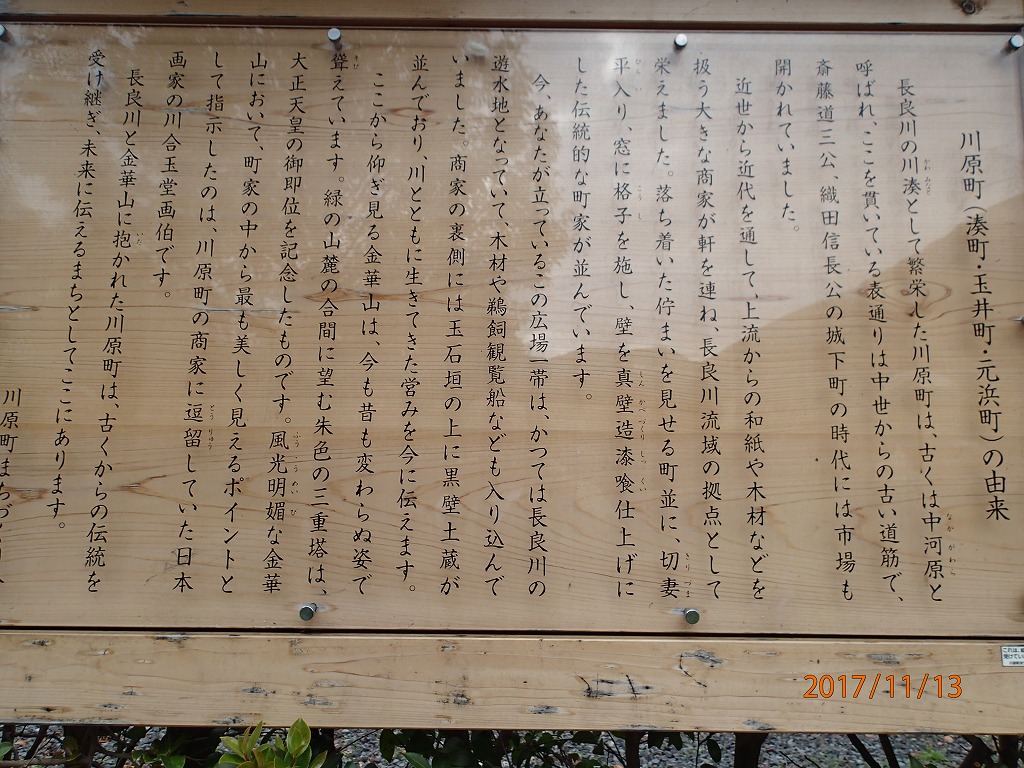 川原町（湊町・玉井町・元浜町）の由来
長良川の川湊として繁栄した川原町は、古くは中河原と
呼ばれ、ここを貫いている表通りは中世からの古い道筋で、
斎藤道三公、織田信長公の城下町の時代には市場も
開かれていました。
近世から近代を通して、上流からの和紙や木材などを
扱う大きな商家が軒を連ね、長良川流域の拠点として
栄えました。落ち着いた佇まいを見せる町並に、切妻
平入り、窓に格子を施し、壁を真壁造漆喰仕上げに
した伝統的な町家が並んでいます。
今、あなたが立っているこの広場一帯は、かつては長良川の
遊水地となっていて、木材や鵜飼観覧船なども入り込んで
いました。商家の裏側には玉石垣の上に黒壁土蔵が
並んでおり、川とともに生きてきた営みを今に伝えます。
ここから仰ぎ見る金華山は、今も昔も変わらぬ姿で
聳えています。緑の山麓の合間に望む朱色の三重塔は、
大正天皇の御即位を記念したものです。風光明媚な金華
山において、町家の中から最も美しく見えるポイントと
して指示したのは、川原町の商家に逗留していた日本
画家の川合玉堂画伯です。
長良川と金華山に抱かれた川原町は、古くからの伝統を
受け継ぎ、未来に伝えるまちとしてここにあります。
川原町まちづくり
2017/11/13